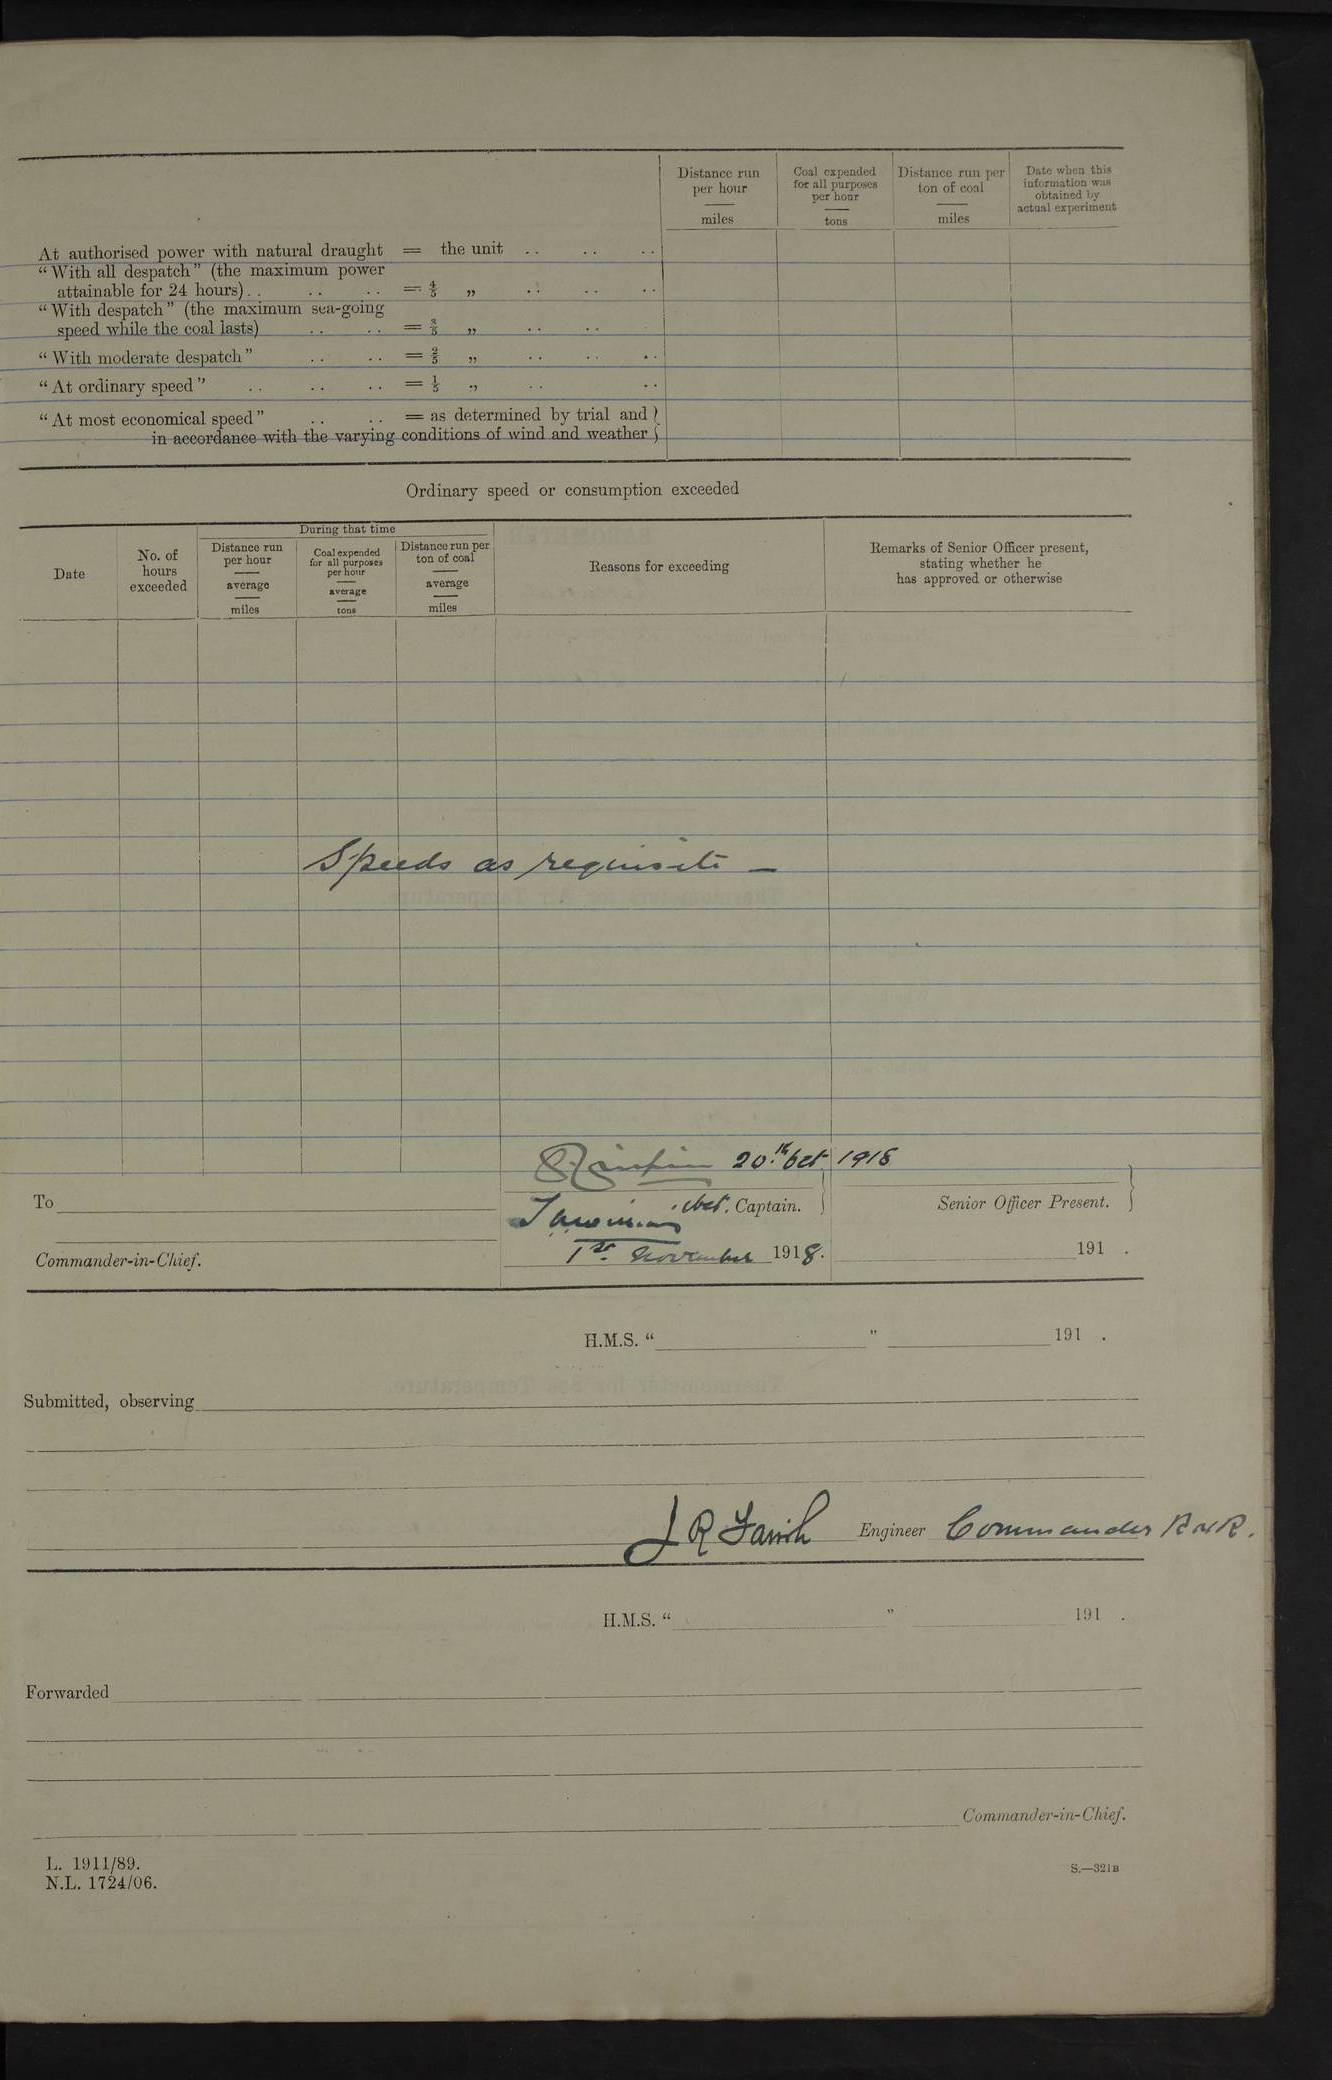 Distance run per hour miles
Coal expended for all purposes per hour tons
Distance run per ton of coal miles
Date when this information was obtained by actual experiment
At authorised power with natural draught = the unit .. .. ..
“With all despatch” (the maximum power
attainable for 24 hours) .. .. .. = 4/5 „ .. .. ..
“With despatch” (the maximum sea-going
speed while the coal lasts) .. .. = 3/5 „ .. ..
“With moderate despatch” .. .. = 2/5 „ .. .. ..
“At ordinary speed” .. .. .. = 1/5 „ .. ..
“At most economical speed” .. .. = as determined by trial and }
in accordance with the varying conditions of wind and weather }
Ordinary speed or consumption exceeded
During that time
Date
No. of hours exceeded
Distance run per hour average miles
Coal expended for all purposes per hour average tons
Distance run per ton of coal average miles
Reasons for exceeding
Remarks of Senior Officer present, stating whether he has approved or otherwise
Speeds as requisite —
20th Oct 1918
To
Captain. }
Senior Officer Present. }
Commander-in-Chief.
1st November 1918.
191 .
H.M.S. “ ” 191 .
Submitted, observing
J R Farish Engineer Commander RNR.
H.M.S. “ ” 191 .
Forwarded
Commander-in-Chief.
L. 1911/89.
N.L. 1724/06.
S.—321B